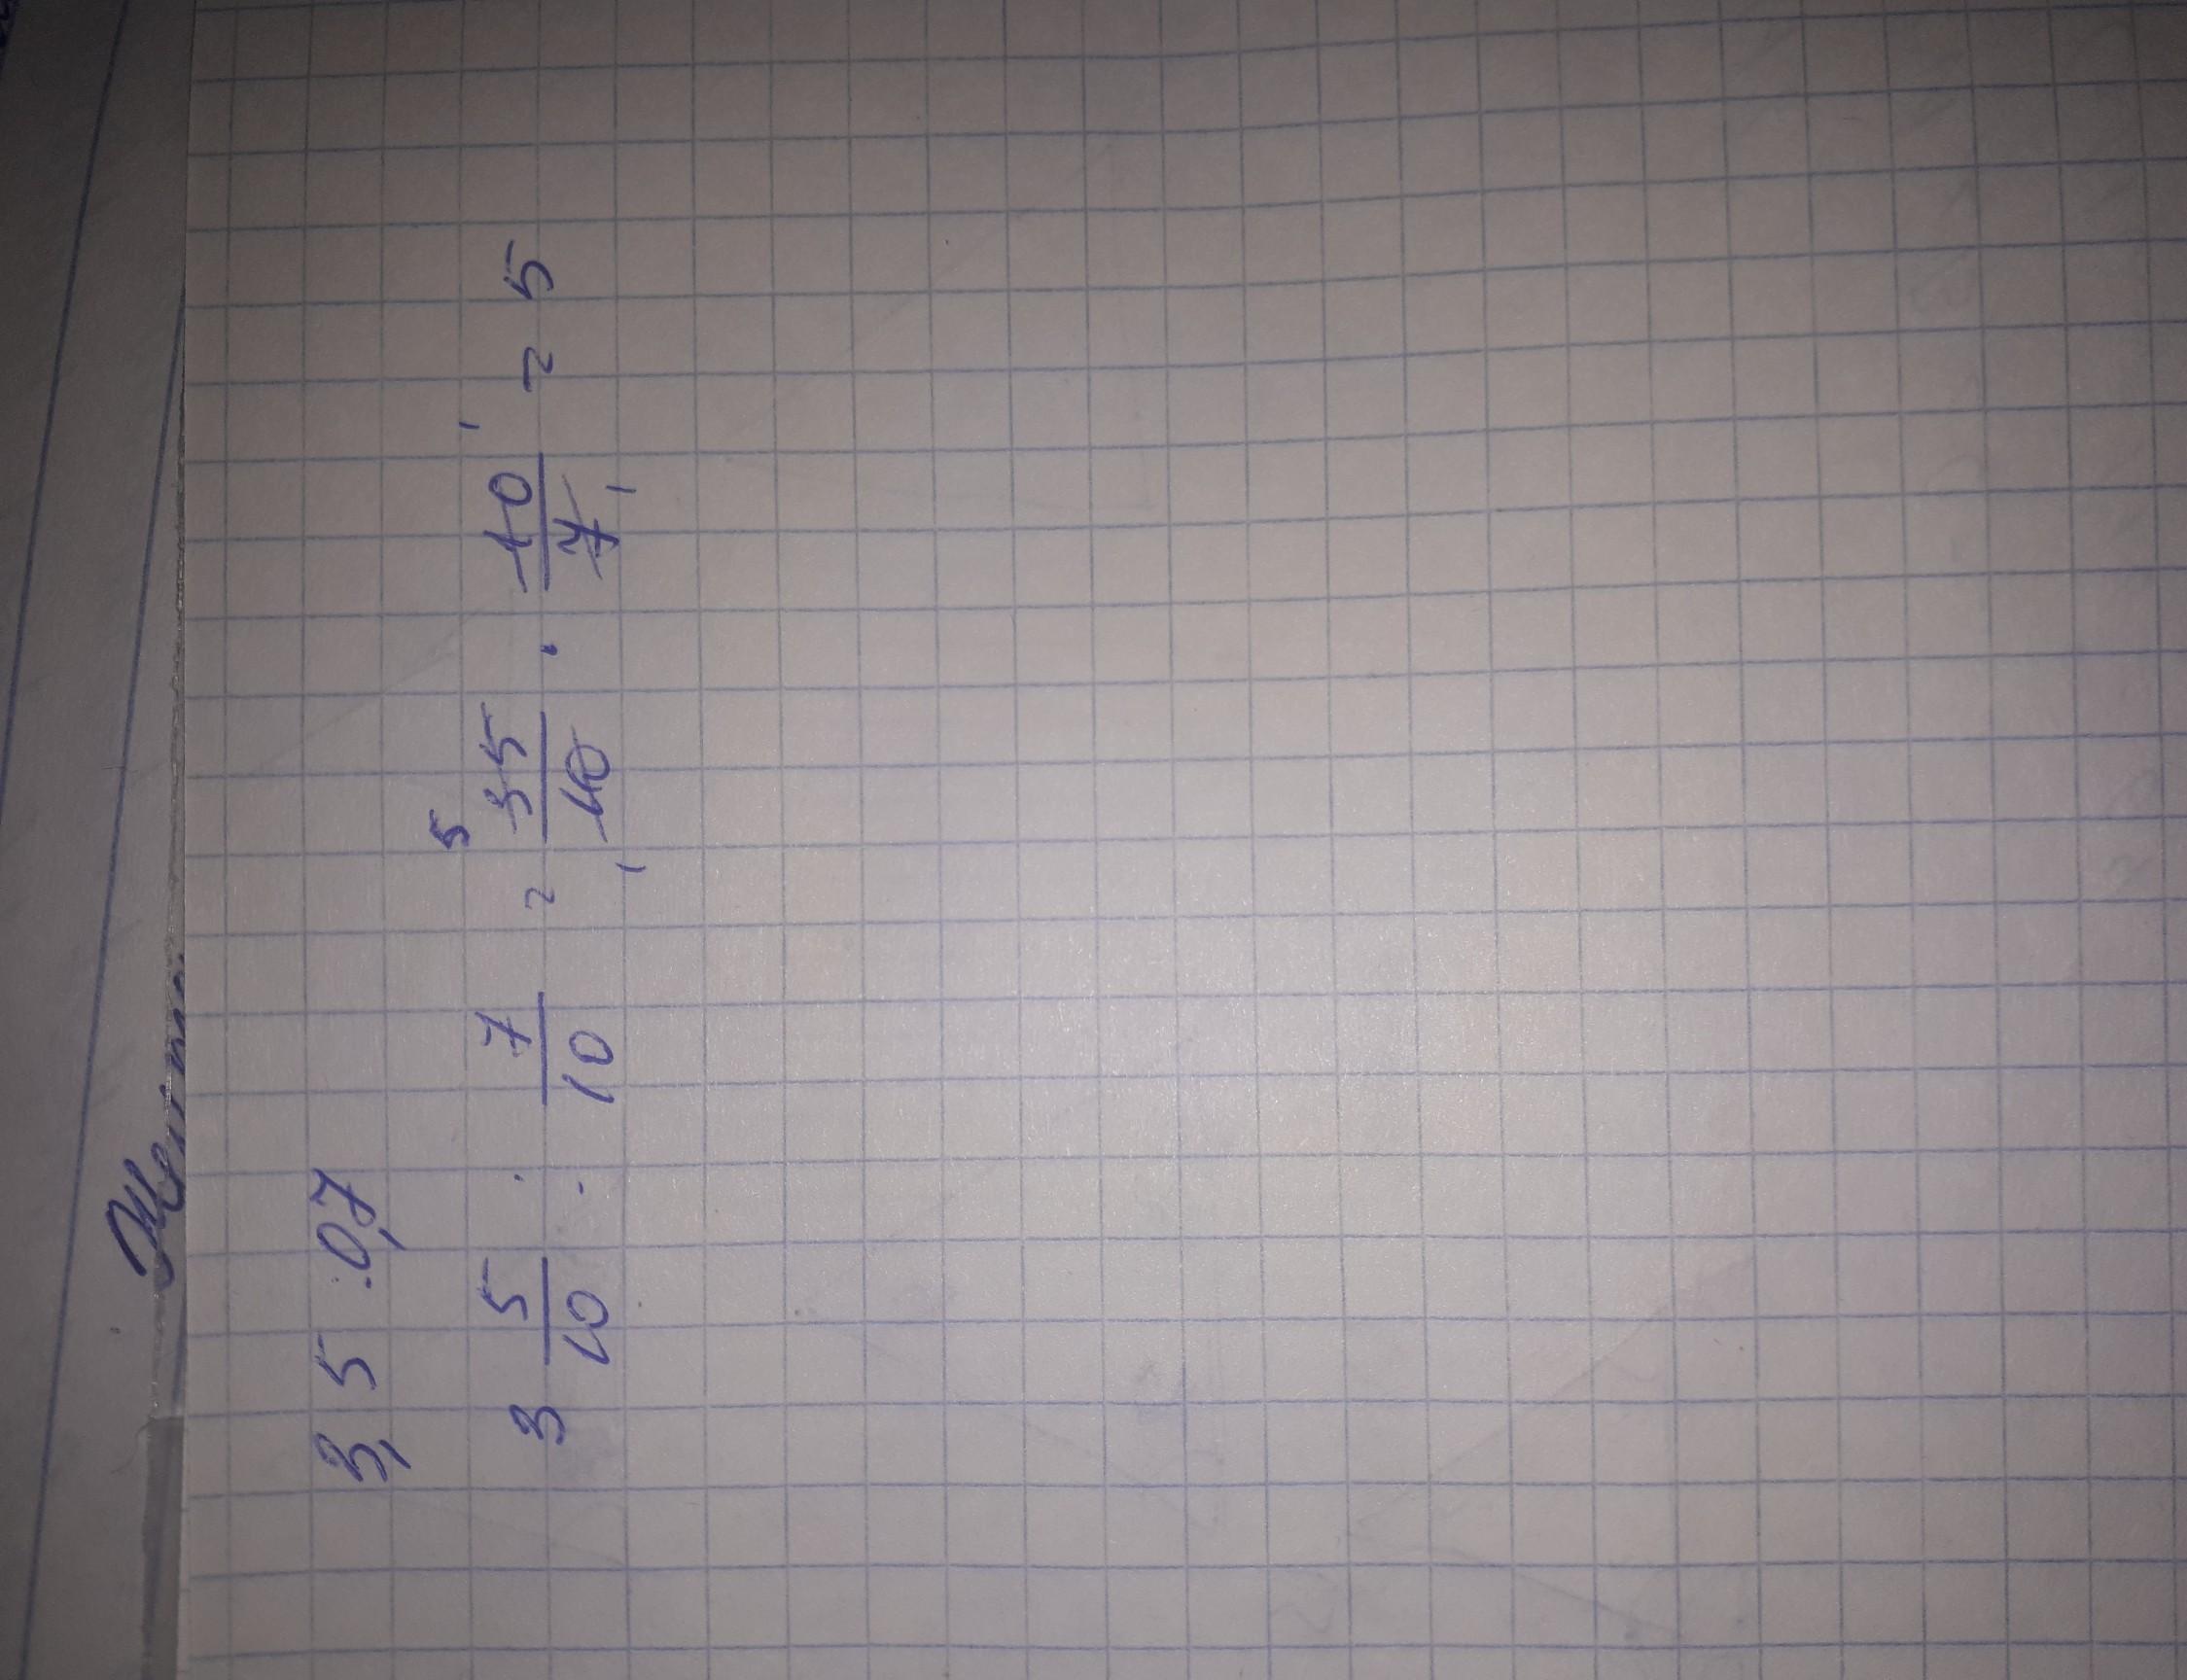 3,5 : 0,7
3 5/10 : 7/10 = 5 35/10 1 · 10/7 1 1 = 5